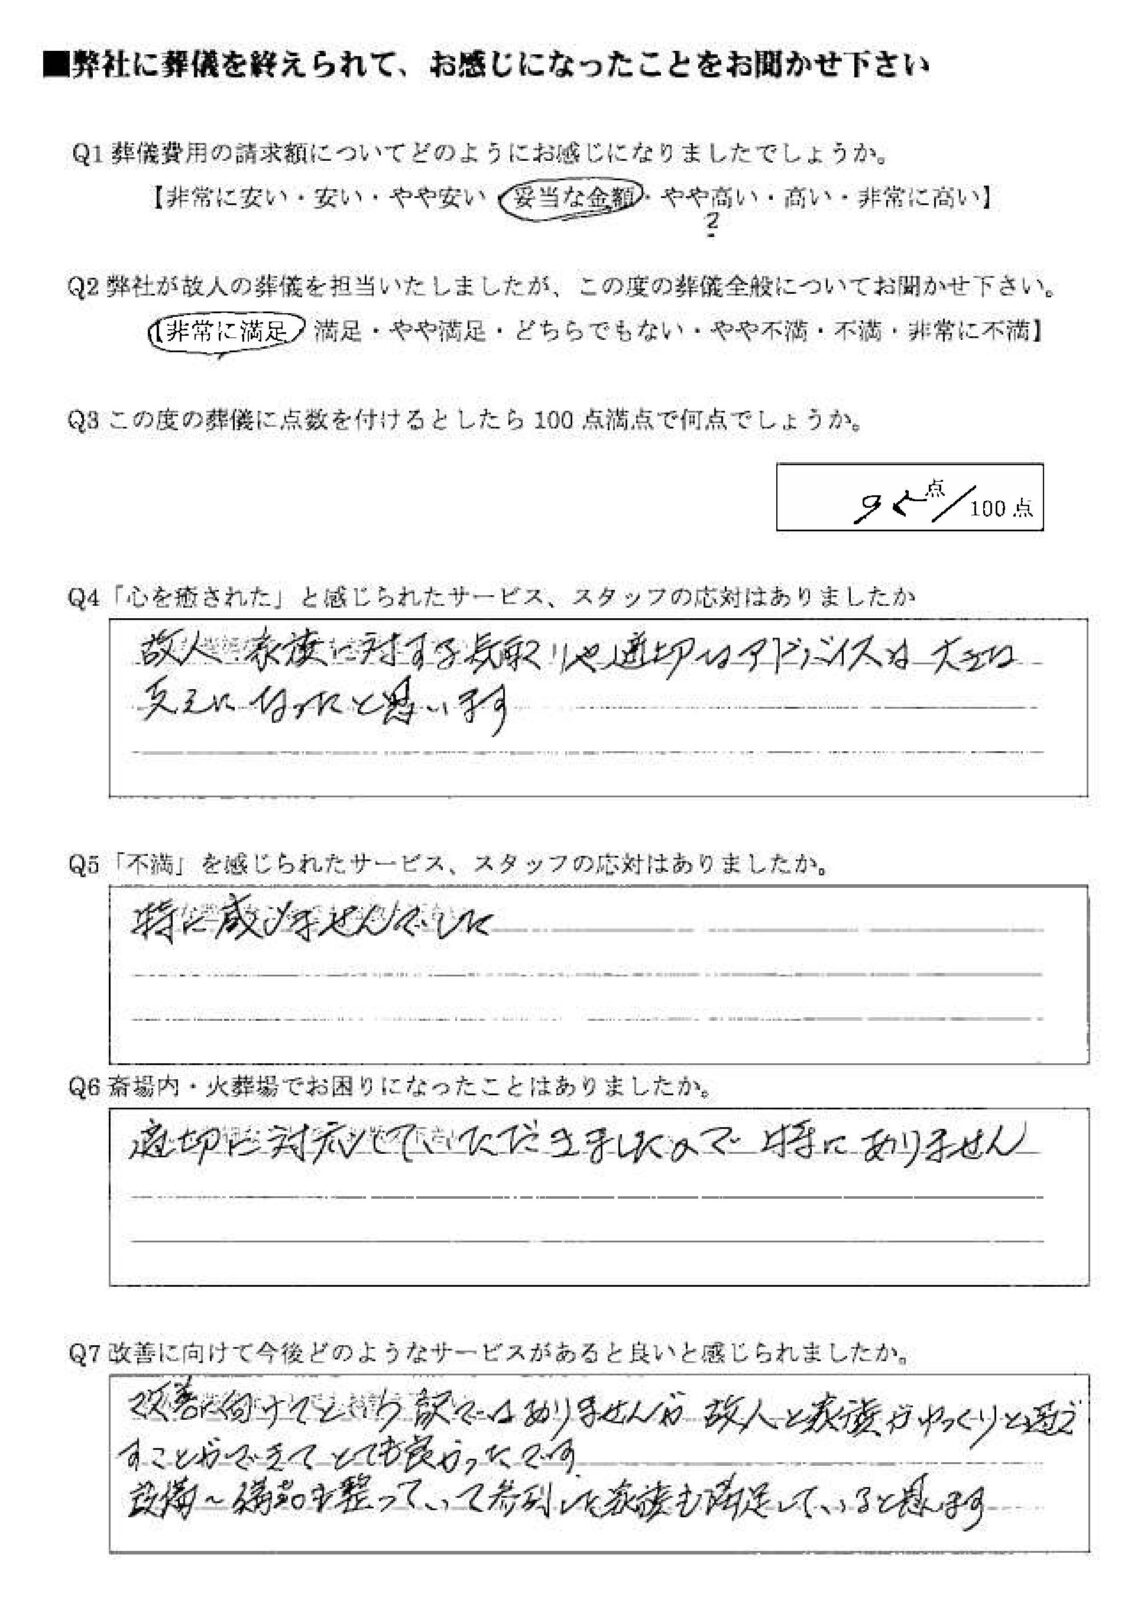 ■弊社に葬儀を終えられて、お感じになったことをお聞かせ下さい
Q1 葬儀費用の請求額についてどのようにお感じになりましたでしょうか。
【非常に安い・安い・やや安い・妥当な金額・やや高い・高い・非常に高い】
?
Q2 弊社が故人の葬儀を担当いたしましたが、この度の葬儀全般についてお聞かせ下さい。
【非常に満足 満足・やや満足・どちらでもない・やや不満・不満・非常に不満】
Q3 この度の葬儀に点数を付けるとしたら 100 点満点で何点でしょうか。
95点/100 点
Q4「心を癒された」と感じられたサービス、スタッフの応対はありましたか
故人、家族に対する気配りや適切なアドバイスは大きな
支えになったと思います
Q5「不満」を感じられたサービス、スタッフの応対はありましたか。
特に感じませんでした
Q6 斎場内・火葬場でお困りになったことはありましたか。
適切に対応していただきましたので特にありません
Q7 改善に向けて今後どのようなサービスがあると良いと感じられましたか。
改善に向けてという訳ではありませんが故人と家族がゆっくりと過ご
すことができてとても良かったです
設備〜備品も整っていて参列した家族も満足していると思います